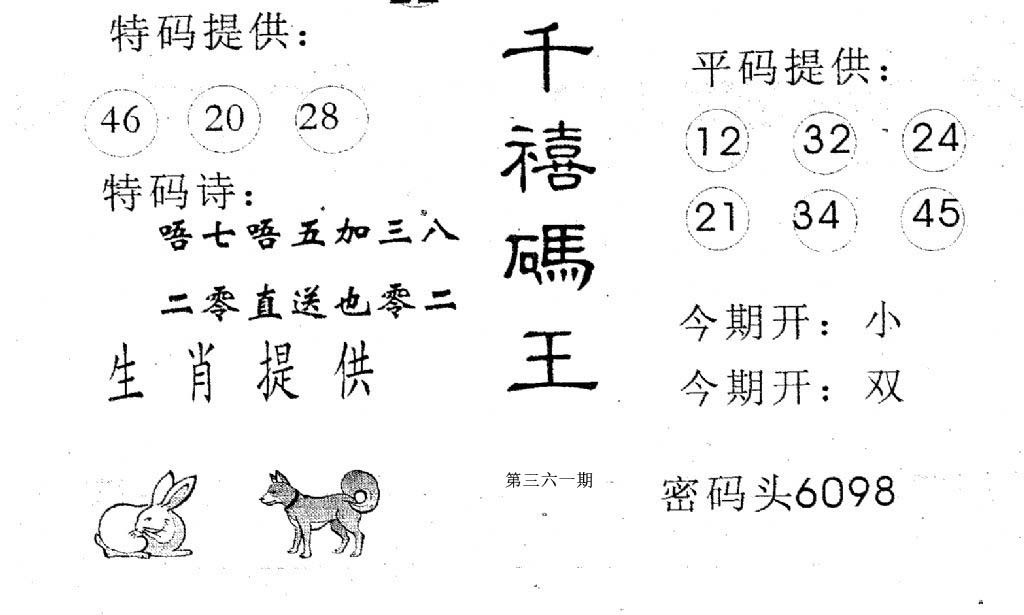 特码提供：
46 20 28
特码诗：
唔七唔五加三八
二零直送也零二
生肖提供
千禧碼王
第三六一期
平码提供：
12 32 24
21 34 45
今期开：小
今期开：双
密码头6098